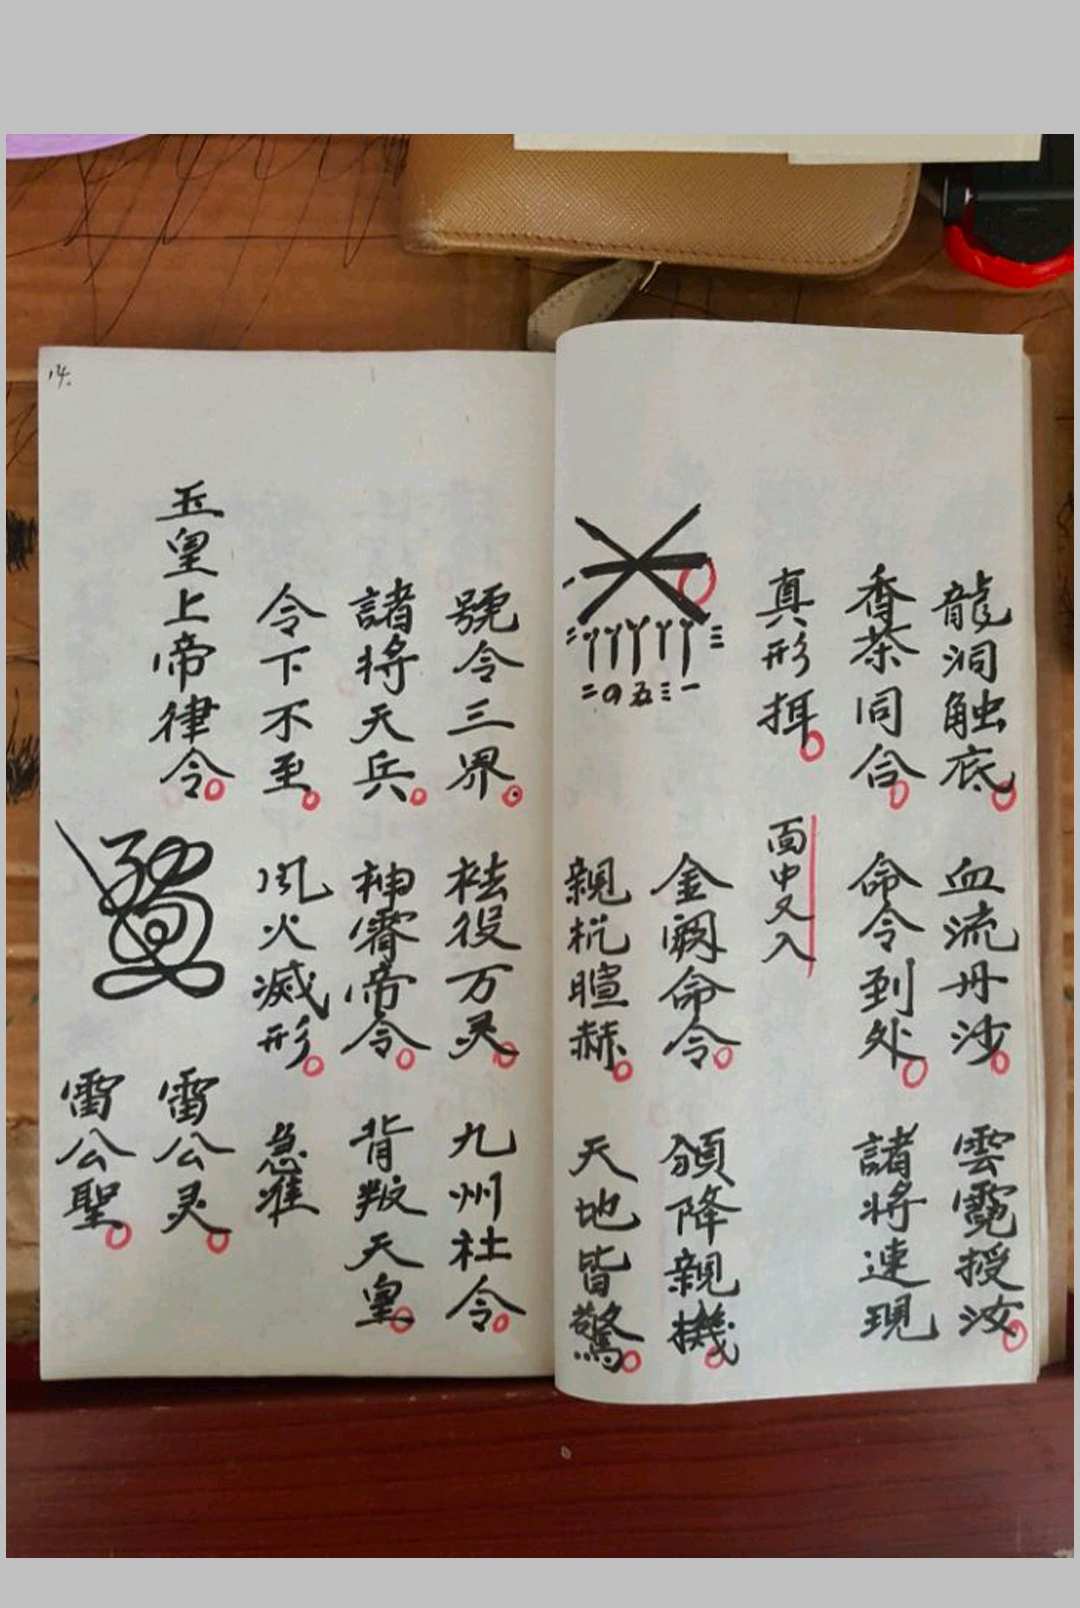 龍洞触底 血流丹沙 雲霓授汝
香茶同合 命令到处 諸將速現
真形挕 面中又入
二 三
二四五三一
金阙命令 頒降親機
親 暄赫 天地皆驚
號令三界 祛役万灵 九州社令
諸將天兵 神霄帝令 背叛天皇
令下不至 风火滅形 急准
玉皇上帝律令 雷公灵
雷公聖
14.